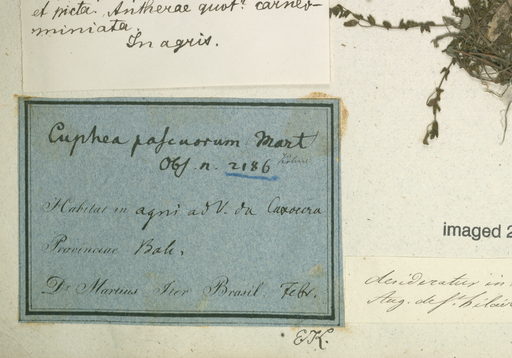 et picta. Antherae quot. carneo-
miniata.
In agris.
Cuphea pascuorum Mart
Obs. n. 2186
Habitat in agris ad V. da Caxoeira
Provinciae Bah.
Dr Martius Iter Brasil. Febr.
imaged 2
desideratur in
Aug. de St. hilair
E.K.